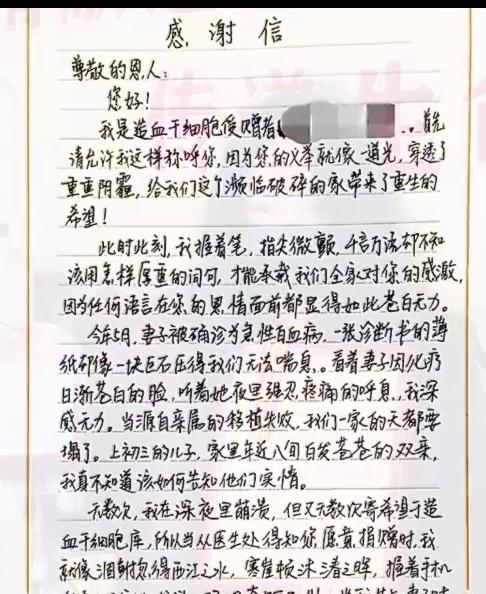 感谢信
尊敬的恩人：
您好！
我是造血干细胞受赠者 。首先
请允许我这样称呼您，因为您的义举就像一道光，穿透了
重重阴霾，给我们这个濒临破碎的家带来了重生的
希望！
此时此刻，我握着笔，指尖微颤，千言万语却不知
该用怎样厚重的词句，才能承载我们全家对您的感激，
因为任何语言在您的恩情面前都显得如此苍白无力。
今年5月，妻子被确诊为急性白血病，一张诊断书的薄
纸却像一块巨石压得我们无法喘息。看着妻子因化疗
日渐苍白的脸，听着她夜里强忍疼痛的呼息，我深
感无力。当源自亲属的移植失败，我们一家的天都要
塌了。上初三的儿子，家里年近八旬白发苍苍的双亲，
我真不知道该如何告知他们实情。
无数次，我在深夜里崩溃，但又无数次寄希望于造
血干细胞库，所以当从医生处得知您愿意捐赠时，我
就像涸鲋忽得西江之水，寒崖顿沐春之晖，握着手机